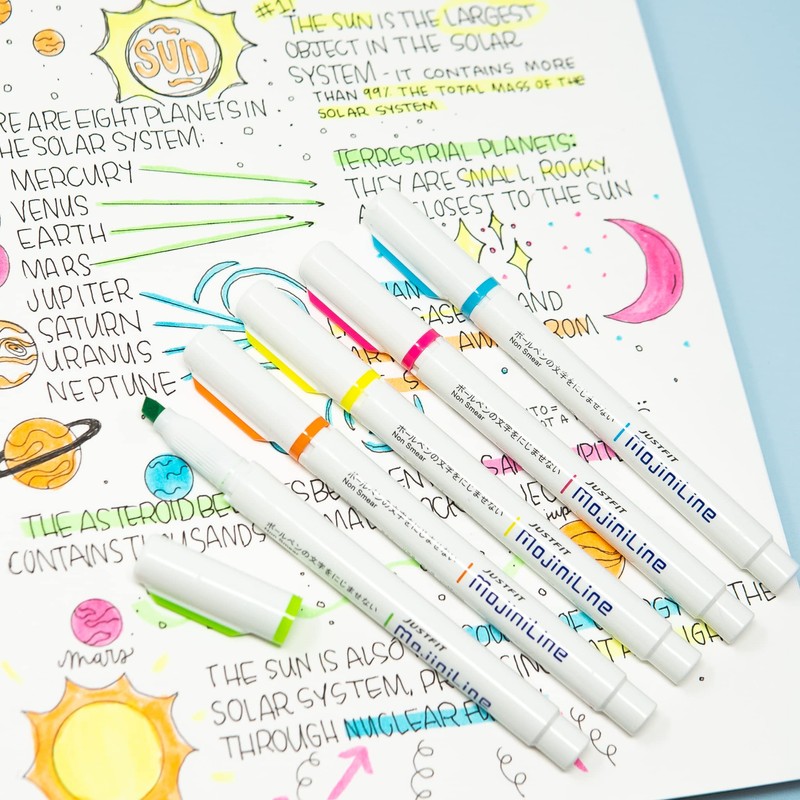 #1!
THE SUN IS THE LARGEST
OBJECT IN THE SOLAR
SYSTEM - IT CONTAINS MORE
THAN 99% THE TOTAL MASS OF THE
SOLAR SYSTEM
sun
RE ARE EIGHT PLANETS IN
HE SOLAR SYSTEM:
MERCURY
VENUS
EARTH
MARS
JUPITER
SATURN
URANUS
NEPTUNE
TERRESTRIAL PLANETS:
THEY ARE SMALL, ROCKY,
CLOSEST TO THE SUN
AND
ROM
THE ASTEROID BE
CONTAINS THOUSANDS
mars
THE SUN IS ALSO
SOLAR SYSTEM,
THROUGH NUCLEAR
THE
ボールペンの文字をにじませない
Non Smear
JUSTFIT
mojiniLine
ボールペンの文字をにじませない
Non Smear
JUSTFIT
mojiniLine
ボールペンの文字をにじませない
Non Smear
JUSTFIT
mojiniLine
ボールペンの文字をにじませない
Non Smear
JUSTFIT
mojiniLine
ボールペンの文字をにじませない
JUSTFIT
mojiniLine